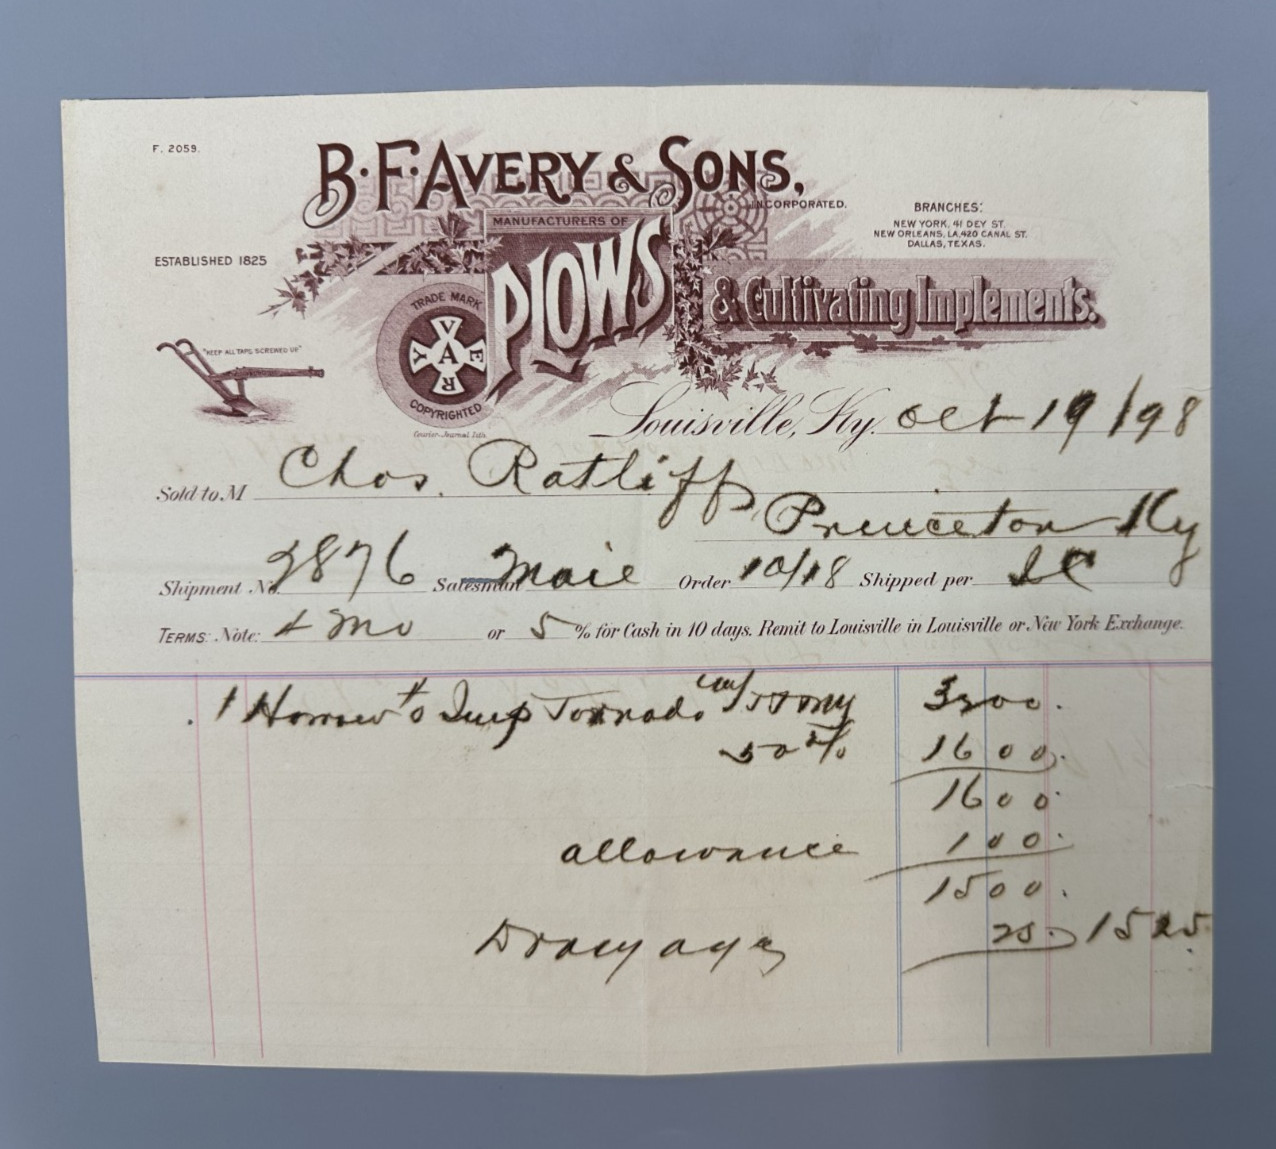 F. 2059.
B. F. AVERY & SONS,
INCORPORATED.
MANUFACTURERS OF
PLOWS
& Cultivating Implements.
BRANCHES:
NEW YORK, 41 DEY ST.
NEW ORLEANS, LA, 420 CANAL ST.
DALLAS, TEXAS.
ESTABLISHED 1825
"KEEP ALL TAPS SCREWED UP"
TRADE MARK
AVERY
COPYRIGHTED
Courier-Journal Lith.
Louisville, Ky. Oct 19/98
Sold to M Chas. Ratliff
Princeton Ky
Shipment No. 2876 Salesman Order 10/18 Shipped per IC
TERMS: Note: 4 Mo or 5 % for Cash in 10 days. Remit to Louisville in Louisville or New York Exchange.
1 Harrow Tornado 3200
50 % 1600
1600
allowance 100
1500
Drayage 25 1525